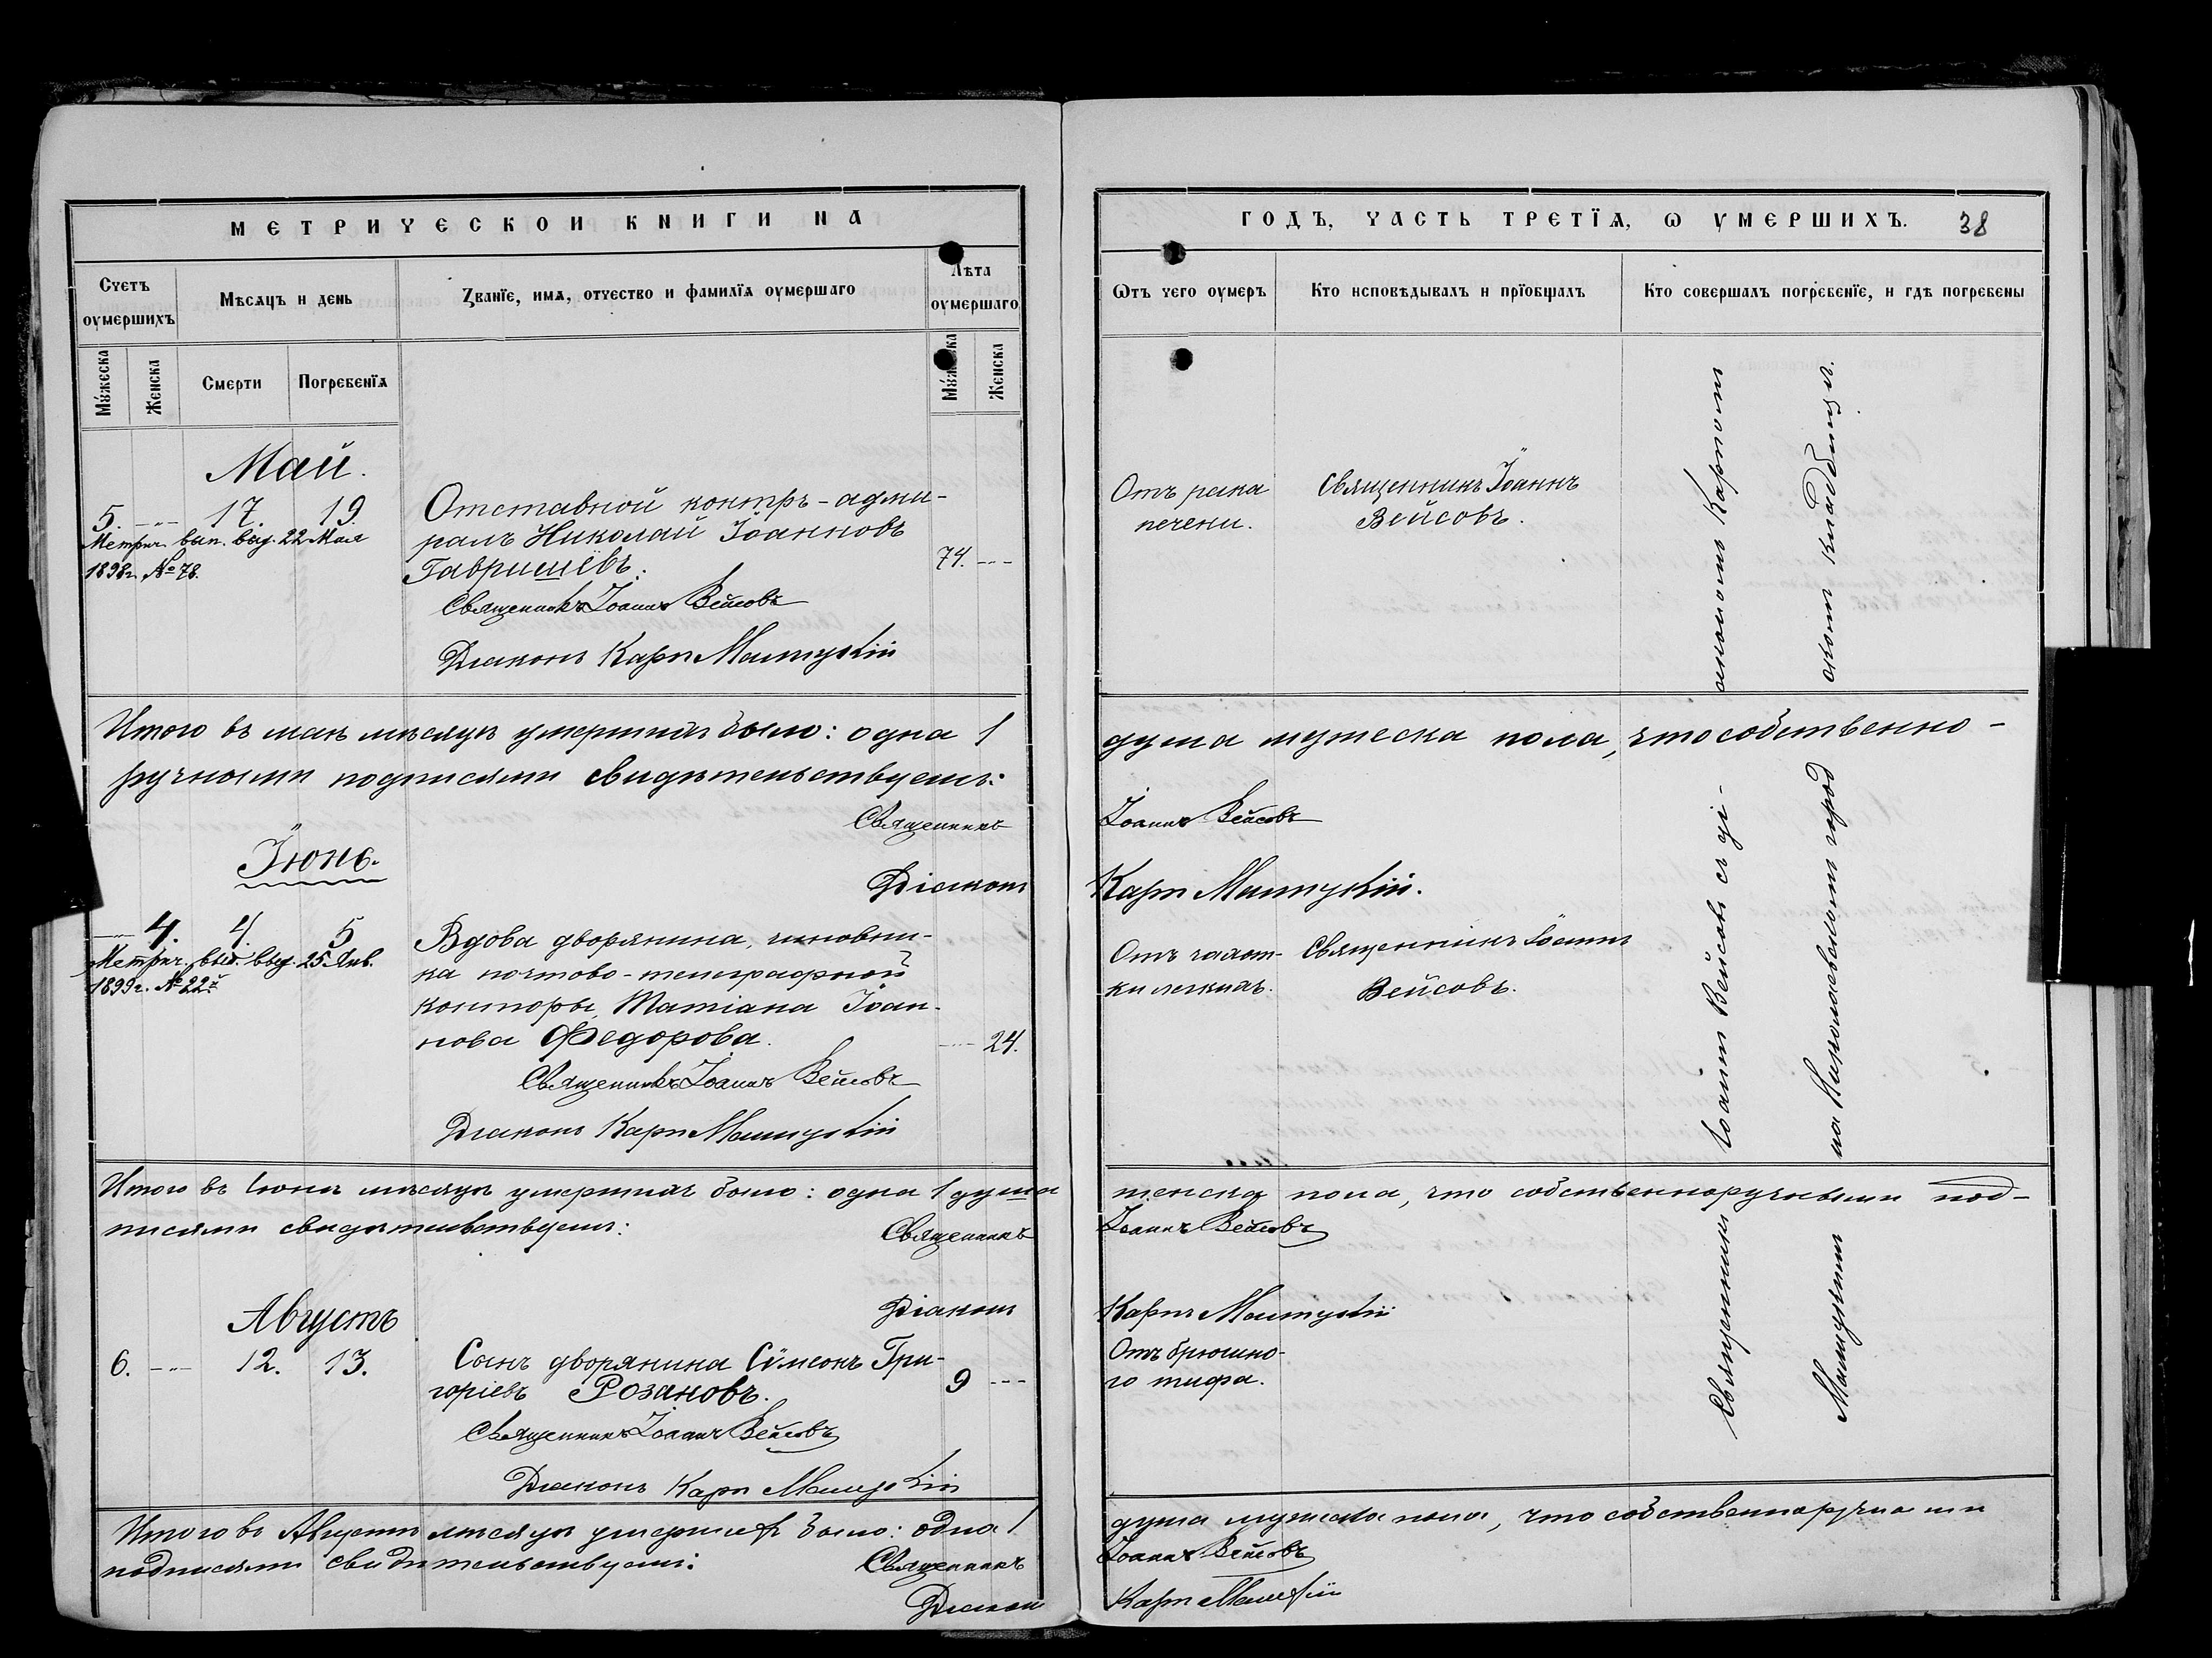 МЕТРИЧЕСКОИ КНИГИ НА
Счетъ оумершихъ
Мѣсяцъ и день
Званїе, имѧ, отчество и фамилїѧ оумершаго
Лѣта оумершаго
Мꙋжеска
Женска
Смерти
Погребенїѧ
Мꙋжеска
Женска
Май.
5. -„- 17. 19.
Метрич. вып. выд. 22 Мая
1898 г. № 78.
Отставной контръ-адми-
ралъ Николай Іоанновъ
Гавришевъ.
74. ---
Священникъ Іоаннъ Вейсовъ
Діаконъ Карпъ
Итого въ маѣ мѣсяцѣ умершихъ было: одна 1
ручными подписями свидѣтельствуемъ:
Священникъ
Діаконъ
Іюнь.
-„- 4. 4. 5
Метрич. вып. выд. 25 Янв.
1899 г. № 22й
Вдова дворянина, чиновни-
ка почтово-телеграфной
конторы, Татіана Іоан-
нова Федорова.
-„- 24.
Священникъ Іоаннъ Вейсовъ
Діаконъ Карпъ
Итого въ Іюнѣ мѣсяцѣ умершихъ было: одна 1 душа
писями свидѣтельствуемъ:
Священникъ
Діаконъ
Августъ
6. -„- 12. 13.
Сынъ дворянина Сѵмеонъ Гри-
горіевъ Розановъ.
9 ---
Священникъ Іоаннъ Вейсовъ
Діаконъ Карпъ
Итого въ Августѣ мѣсяцѣ умершихъ было: одна 1
подписями свидѣтельствуемъ:
Священникъ
Діаконъ
ГОДЪ, ЧАСТЬ ТРЕТЇѦ, Ѡ ꙊМЕРШИХЪ. 38
Ѿтъ чего оумеръ
Кто исповѣдывалъ и прїобщалъ
Кто совершалъ погребенїе, и гдѣ погребены
Отъ рака
печени.
Священникъ Іоаннъ
Вейсовъ.
душа мужеска пола, что собственно-
Іоаннъ Вейсовъ
Карпъ
Отъ чахот-
ки легкихъ.
Священникъ Іоаннъ
Вейсовъ.
женска пола, что собственноручными под-
Іоаннъ Вейсовъ
Карпъ
Отъ брюшно-
го тифа.
душа мужеска пола, что собственноручными
Іоаннъ Вейсовъ
Карпъ
Священникъ Іоаннъ Вейсовъ съ ді-
акономъ Карпомъ
на Николаевскомъ город
скомъ кладбищѣ.